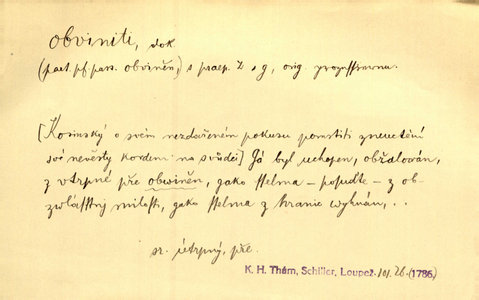 obviniti, dok
(part. pf pass. obviněn,) s praep. z, g, orig.
[Kosinský o svém nezdařeném pokusu pomstiti zneuctění
své nevěsty kordem na svůdci] Já byl uchopen, obžalován,
z vtrpné pře obwiněn, gako sselma – posudte – z ob-
zwlásstnj milosti, gako sselma z hranic wyhnán, ..
sr. útrpný, pře.
K. H. Thám, Schiller, Loupež. 101.26. (1786)